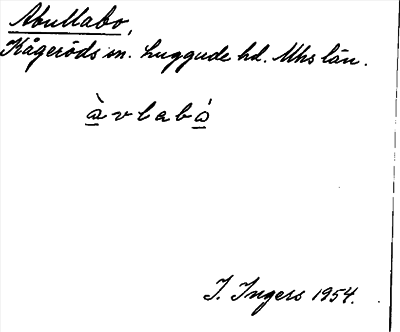 Abullabo,
Kågeröds sn. Luggude hd. Mhs län.
àvlabó
I. Ingers 1954.